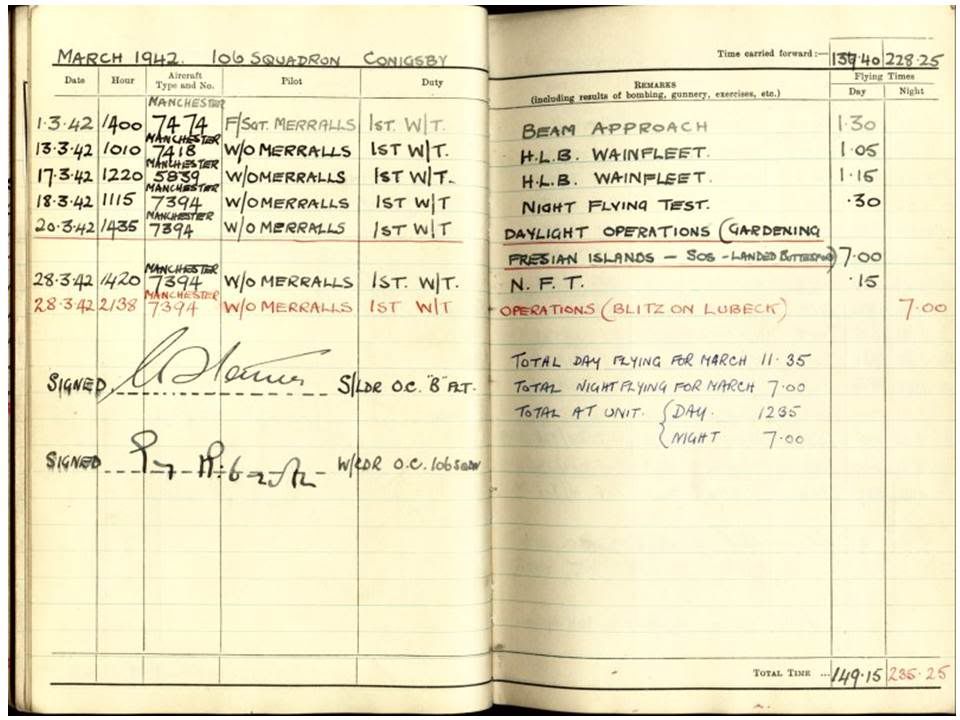 MARCH 1942. 106 SQUADRON CONIGSBY
Time carried forward:— 137·40 228·25
Date Hour Aircraft Type and No. Pilot Duty REMARKS (including results of bombing, gunnery, exercises, etc.) Flying Times Day Night
1·3·42 1400 MANCHESTER 7474 F/SGT. MERRALLS 1ST. W/T. BEAM APPROACH 1·30
13·3·42 1010 MANCHESTER 7418 W/O MERRALLS 1ST W/T. H.L.B. WAINFLEET. 1·05
17·3·42 1220 MANCHESTER 5839 W/O MERRALLS 1ST W/T. H.L.B. WAINFLEET. 1·15
18·3·42 1115 MANCHESTER 7394 W/O MERRALLS 1ST W/T NIGHT FLYING TEST. ·30
20·3·42 1435 MANCHESTER 7394 W/O MERRALLS 1ST W/T DAYLIGHT OPERATIONS (GARDENING
FRESIAN ISLANDS — SOS - LANDED BUTTESFORD) 7·00
28·3·42 1420 MANCHESTER 7394 W/O MERRALLS 1ST. W/T. N. F. T. ·15
28·3·42 2138 MANCHESTER 7394 W/O MERRALLS 1ST W/T OPERATIONS (BLITZ ON LUBECK) 7·00
TOTAL DAY FLYING FOR MARCH 11·35
SIGNED S/LDR O.C. "B" FLT.
TOTAL NIGHT FLYING FOR MARCH 7·00
TOTAL AT UNIT. DAY. 1235
NIGHT 7·00
SIGNED W/CDR O.C. 106 SQDN
TOTAL TIME ... 149·15 235·25